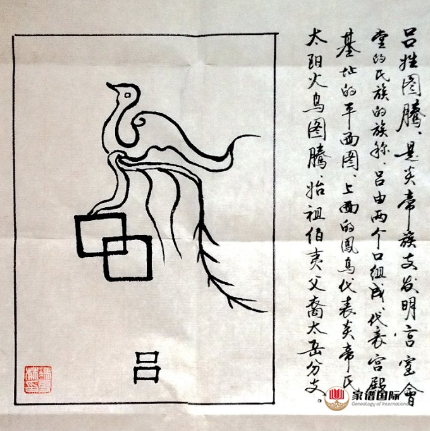 吕姓图腾,是炎帝族支发明宫室会
堂的氏族的族称.吕由两个口组成代表宫殿
基址的平面图,上面的凤鸟代表炎帝氏
太阳火鸟图腾.始祖伯夷父裔太岳分支。
吕
家谱国际
Genealogy of International